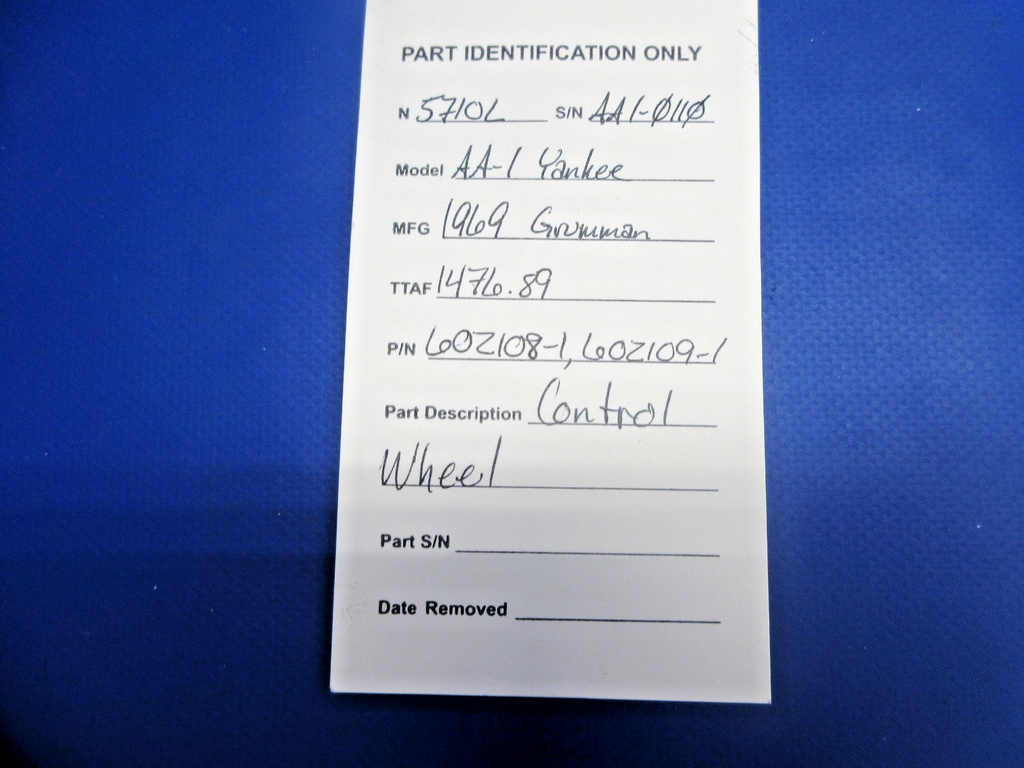 PART IDENTIFICATION ONLY
N 5710L S/N AA1-Ø11Ø
Model AA-1 Yankee
MFG 1969 Grumman
TTAF 1476.89
P/N 602108-1, 602109-1
Part Description Control
Wheel
Part S/N
Date Removed